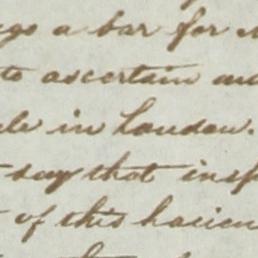 ago a bar for
to ascertain
in London.
say that insp
of this hacien